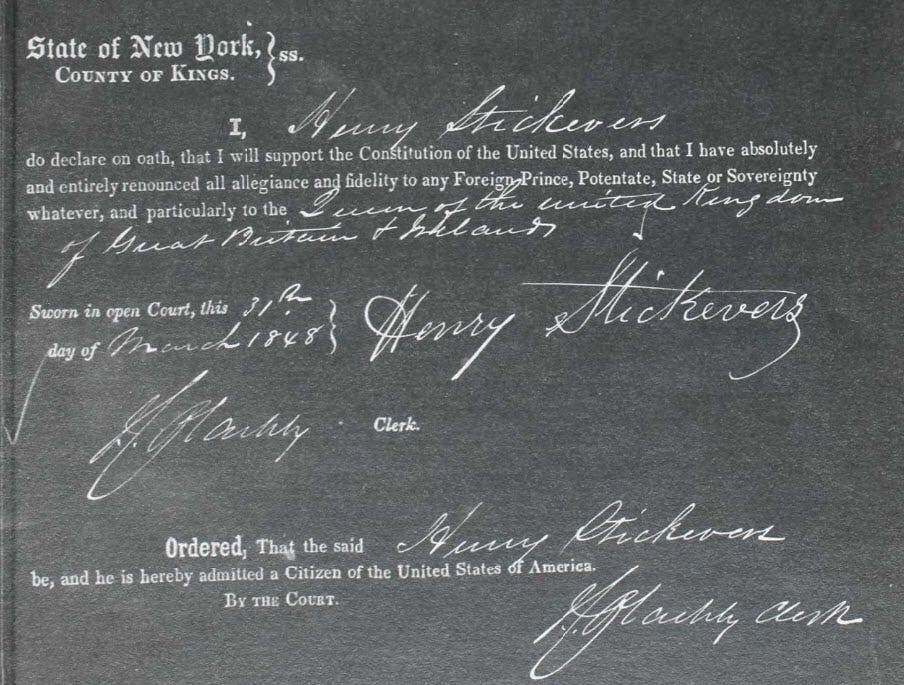 State of New York, } ss.
COUNTY OF KINGS.
I, Henry Stickevers
do declare on oath, that I will support the Constitution of the United States, and that I have absolutely
and entirely renounced all allegiance and fidelity to any Foreign Prince, Potentate, State or Sovereignty
whatever, and particularly to the Queen of the united Kingdom
of Great Britain & Ireland
Sworn in open Court, this 31st
day of March 1848 } Henry Stickevers
Clerk.
Ordered, That the said Henry Stickevers
be, and he is hereby admitted a Citizen of the United States of America.
BY THE COURT.
Clerk